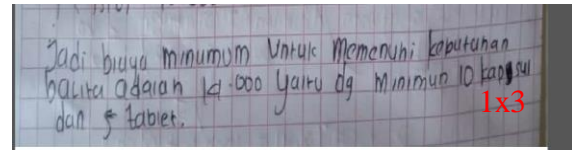 Jadi biaya minumum Untuk memenuhi kebutuhan
balita adalah 14.000 yaitu dg minimun 10 kapsul
1x3
dan 5 tablet.